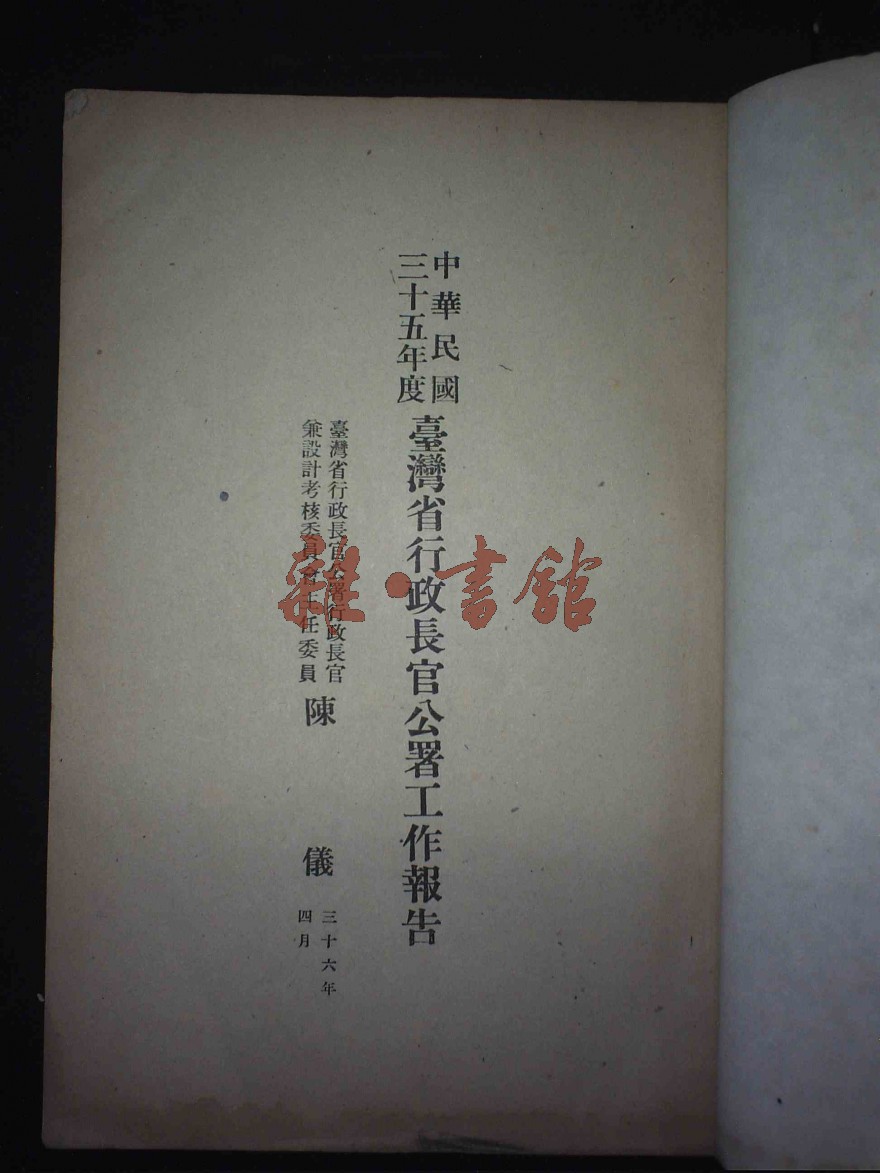 中華民國
三十五年度
臺灣省行政長官公署工作報告
臺灣省行政長官公署行政長官
兼設計考核委員會主任委員
陳儀
三十六年
四月
雜·書館